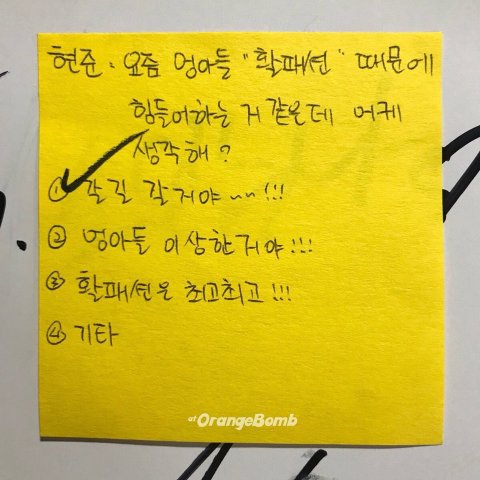 현준 : 요즘 엉아들 "활패션" 때문에
힘들어하는 거 같은데 어케
생각해?
① 갈길 갈거야 ~~!!!
② 엉아들 이상한거야!!!
③ 활패션은 최고최고!!!
④ 기타
at OrangeBomb